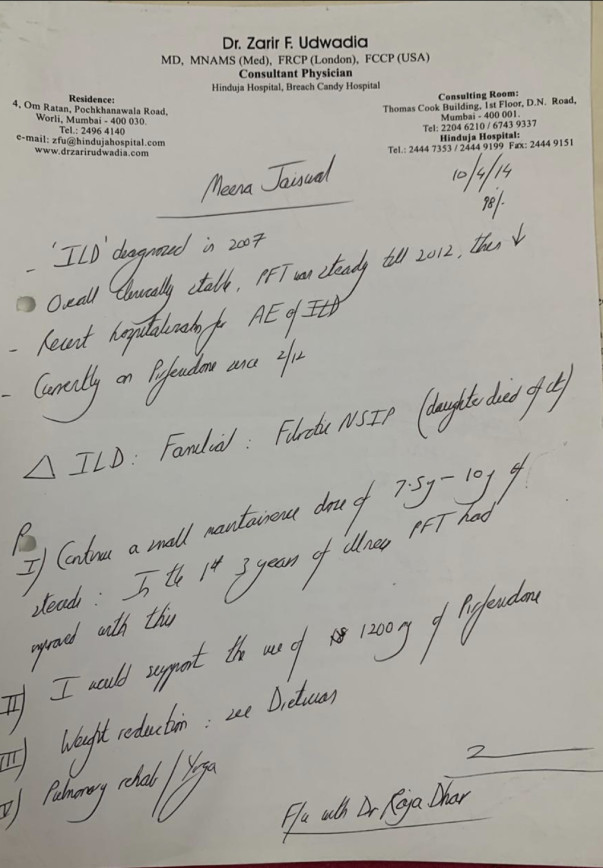 Dr. Zarir F. Udwadia
MD, MNAMS (Med), FRCP (London), FCCP (USA)
Consultant Physician
Hinduja Hospital, Breach Candy Hospital
Residence:
4, Om Ratan, Pochkhanawala Road,
Worli, Mumbai - 400 030.
Tel.: 2496 4140
e-mail: zfu@hindujahospital.com
www.drzarirudwadia.com
Consulting Room:
Thomas Cook Building, 1st Floor, D.N. Road,
Mumbai - 400 001.
Tel: 2204 6210 / 6743 9337
Hinduja Hospital:
Tel.: 2444 7353 / 2444 9199 Fax: 2444 9151
Meena Jaiswal
10/4/14
98/-
- 'ILD' diagnosed in 2007
Overall clinically stable, PFT was steady till 2012, then ↓
- Recent hospitalization for AE of ILD
- Currently on Pirfendone since 2/12
△ ILD: Familial: Fibrotic NSIP (daughter died of it)
R
I) Continue a small maintainence dose of 7.5g - 10g of
steroids: In the 1st 3 years of illness PFT had
improved with this
II) I would support the use of 1200mg of Pirfendone
III) Weight reduction: see Dietician
V) Pulmonary rehab / Yoga
F/u with Dr Raja Dhar